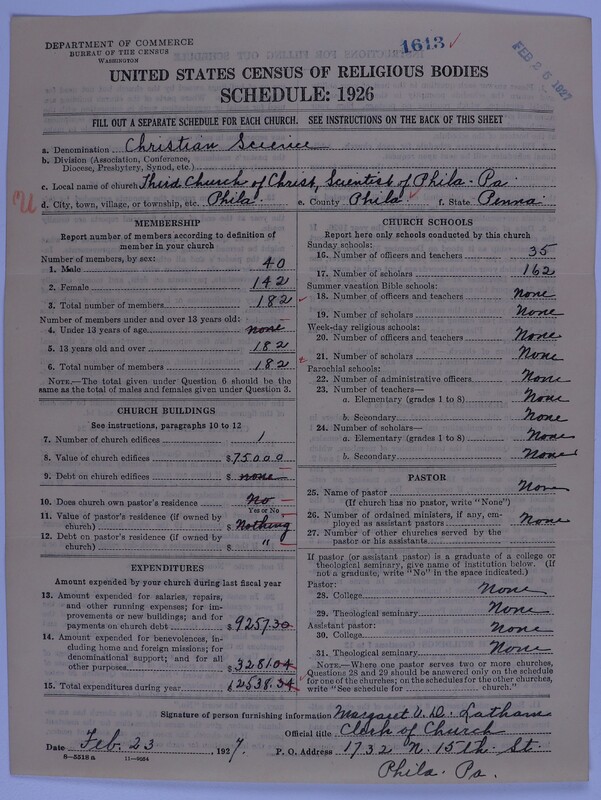 DEPARTMENT OF COMMERCE
BUREAU OF THE CENSUS
WASHINGTON
1613
FEB 26 1927
UNITED STATES CENSUS OF RELIGIOUS BODIES
SCHEDULE: 1926
FILL OUT A SEPARATE SCHEDULE FOR EACH CHURCH. SEE INSTRUCTIONS ON THE BACK OF THIS SHEET
a. Denomination Christian Science
b. Division (Association, Conference, Diocese, Presbytery, Synod, etc.)
c. Local name of church Third Church of Christ, Scientist of Phila. Pa
d. City, town, village, or township, etc. Phila. e. County Phila. f. State Penna.
MEMBERSHIP
Report number of members according to definition of member in your church
Number of members, by sex:
1. Male 40
2. Female 142
3. Total number of members 182
Number of members under and over 13 years old:
4. Under 13 years of age none
5. 13 years old and over 182
6. Total number of members 182
NOTE.—The total given under Question 6 should be the same as the total of males and females given under Question 3.
CHURCH BUILDINGS
See instructions, paragraphs 10 to 12
7. Number of church edifices 1
8. Value of church edifices $75000
9. Debt on church edifices $ none
10. Does church own pastor's residence No
Yes or No
11. Value of pastor's residence (if owned by church) $ Nothing
12. Debt on pastor's residence (if owned by church) $ "
EXPENDITURES
Amount expended by your church during last fiscal year
13. Amount expended for salaries, repairs, and other running expenses; for improvements or new buildings; and for payments on church debt $9257.30
14. Amount expended for benevolences, including home and foreign missions; for denominational support; and for all other purposes $3281.04
15. Total expenditures during year $12538.34
CHURCH SCHOOLS
Report here only schools conducted by this church
Sunday schools:
16. Number of officers and teachers 35
17. Number of scholars 162
Summer vacation Bible schools:
18. Number of officers and teachers None
19. Number of scholars None
Week-day religious schools:
20. Number of officers and teachers None
21. Number of scholars None
Parochial schools:
22. Number of administrative officers None
23. Number of teachers—
a. Elementary (grades 1 to 8) None
b. Secondary None
24. Number of scholars—
a. Elementary (grades 1 to 8) None
b. Secondary None
PASTOR
25. Name of pastor None
(If church has no pastor, write "None")
26. Number of ordained ministers, if any, employed as assistant pastors None
27. Number of other churches served by the pastor or his assistants
If pastor (or assistant pastor) is a graduate of a college or theological seminary, give name of institution below. (If not a graduate, write "No" in the space indicated.)
Pastor:
28. College None
29. Theological seminary None
Assistant pastor:
30. College None
31. Theological seminary None
NOTE.—Where one pastor serves two or more churches, Questions 28 and 29 should be answered only on the schedule for one of the churches; on the schedules for the other churches, write "See schedule for church."
Signature of person furnishing information Margaret V. D. Latham
Official title Clerk of Church
Date Feb. 23, 1927. P. O. Address 1732 N. 15th. St.
8-5518 a 11-9054
Phila. Pa.